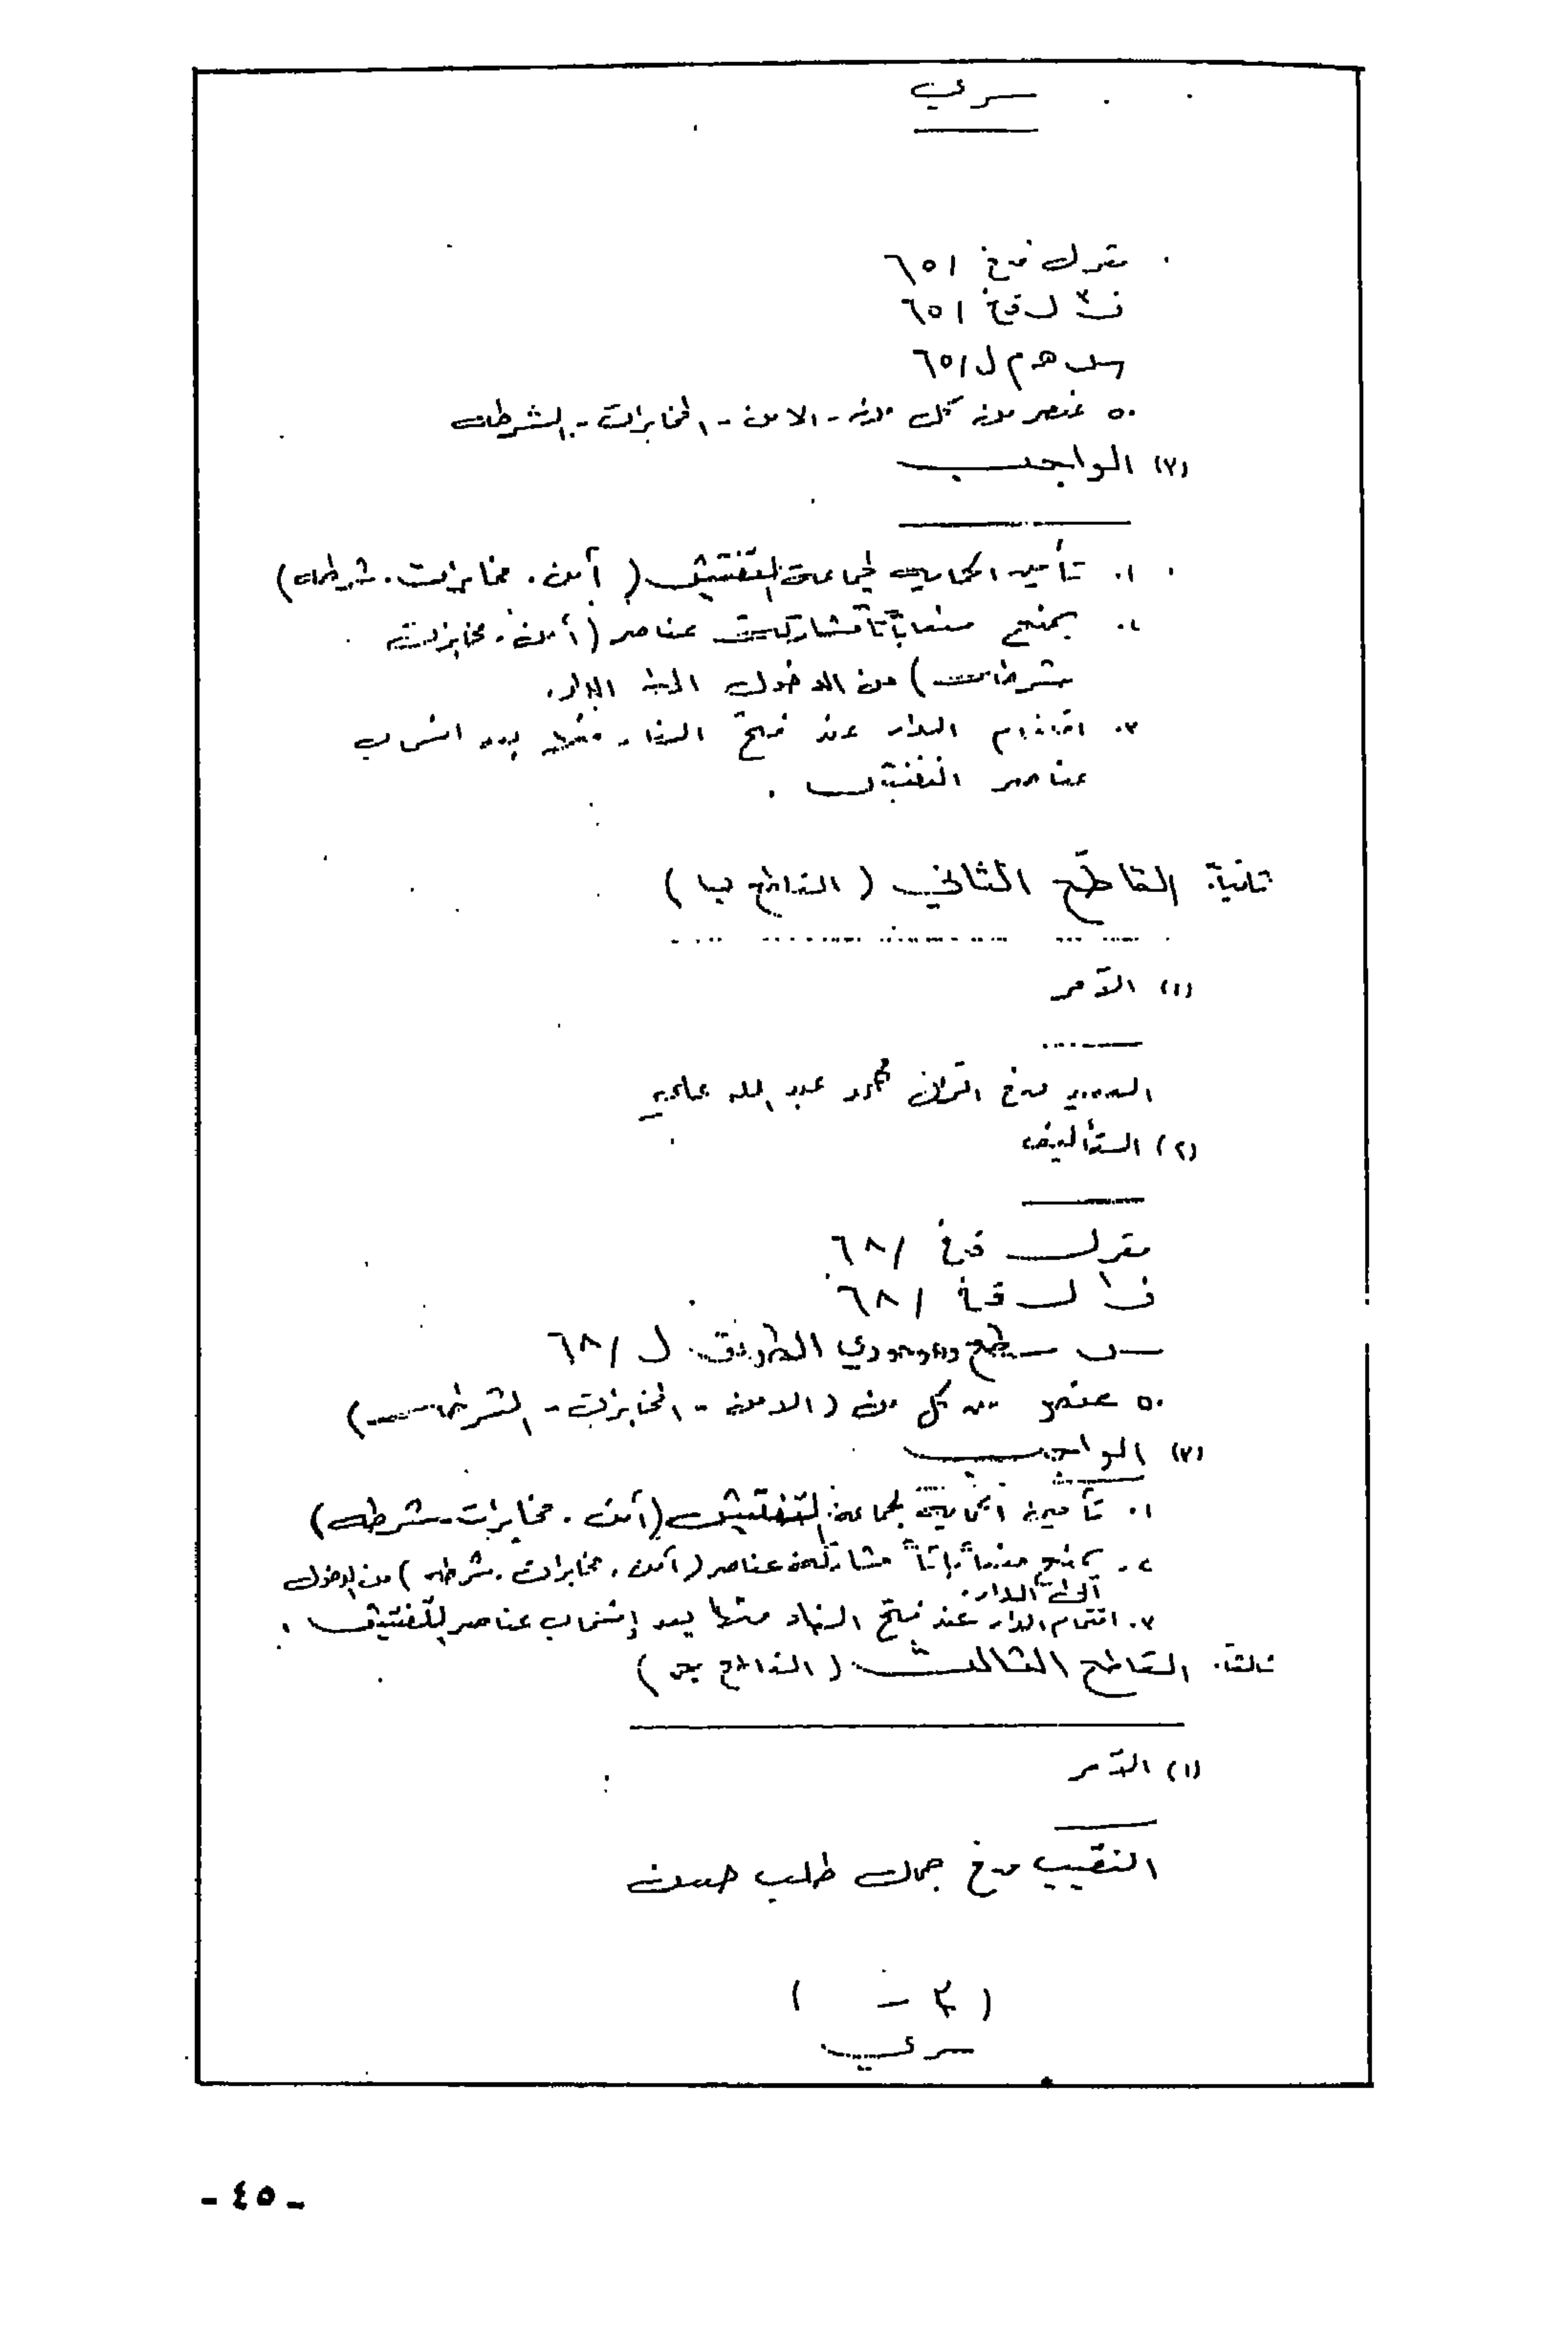 سري
مقر ل ق خ ٦٥١
ف٣ ل ق خ ٦٥١
س هـ م ل ٦٥١
٥٠ عنصر من كل من - الامن - المخابرات - الشرطه
(٣) الواجب
٠١ تأمين الحمايه لجماعة التفتيش ( أمن . مخابرات . شرطه)
٠٢ يمنع منعاً باتاً مشاركة عناصر (أمن . مخابرات
شرطه) من الدخول الى الدار.
٠٣ اقتحام الدار عند فتح النار منها بعد انسحاب
عناصر التفتيش .
ثانية. القاطع الثاني ( القاطع ب )
(١) الآمر
ق خ محمد عبد الله
(٢) التأليف
مقر ل ق خ /٦٨
ف١ ل ق خ /٦٨
الطريق ل /٦٨
٥٠ عنصر من كل من ( الامن - المخابرات - الشرطه)
(٣) الواجب
٠١ تأمين الحماية لجماعة التفتيش (أمن . مخابرات - شرطه)
٠٢ يمنع منعاً باتاً مشاركة عناصر (أمن . مخابرات . شرطه) من الدخول
الى الدار.
٠٣ اقتحام الدار عند فتح النار منها بعد إنسحاب عناصر التفتيش .
ثالثا. القاطع الثالث ( القاطع جـ )
(١) الآمر
النقيب ق خ جمال طلب حسن
( ٣ - )
سري
- ٤٥ -